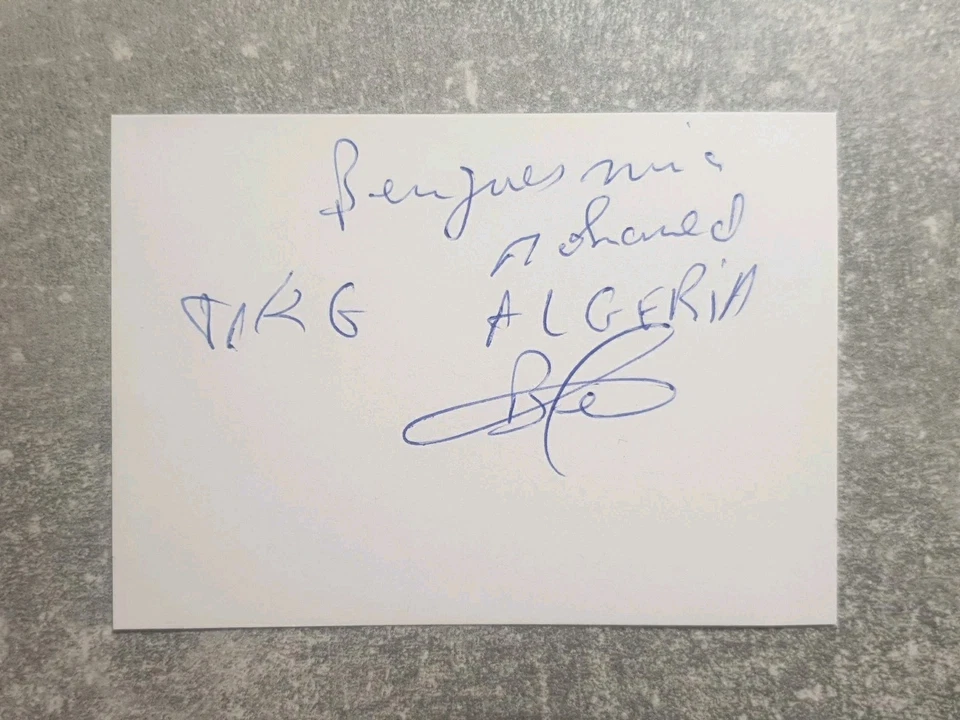 Benguesmia
Mohamed
ALGERIA